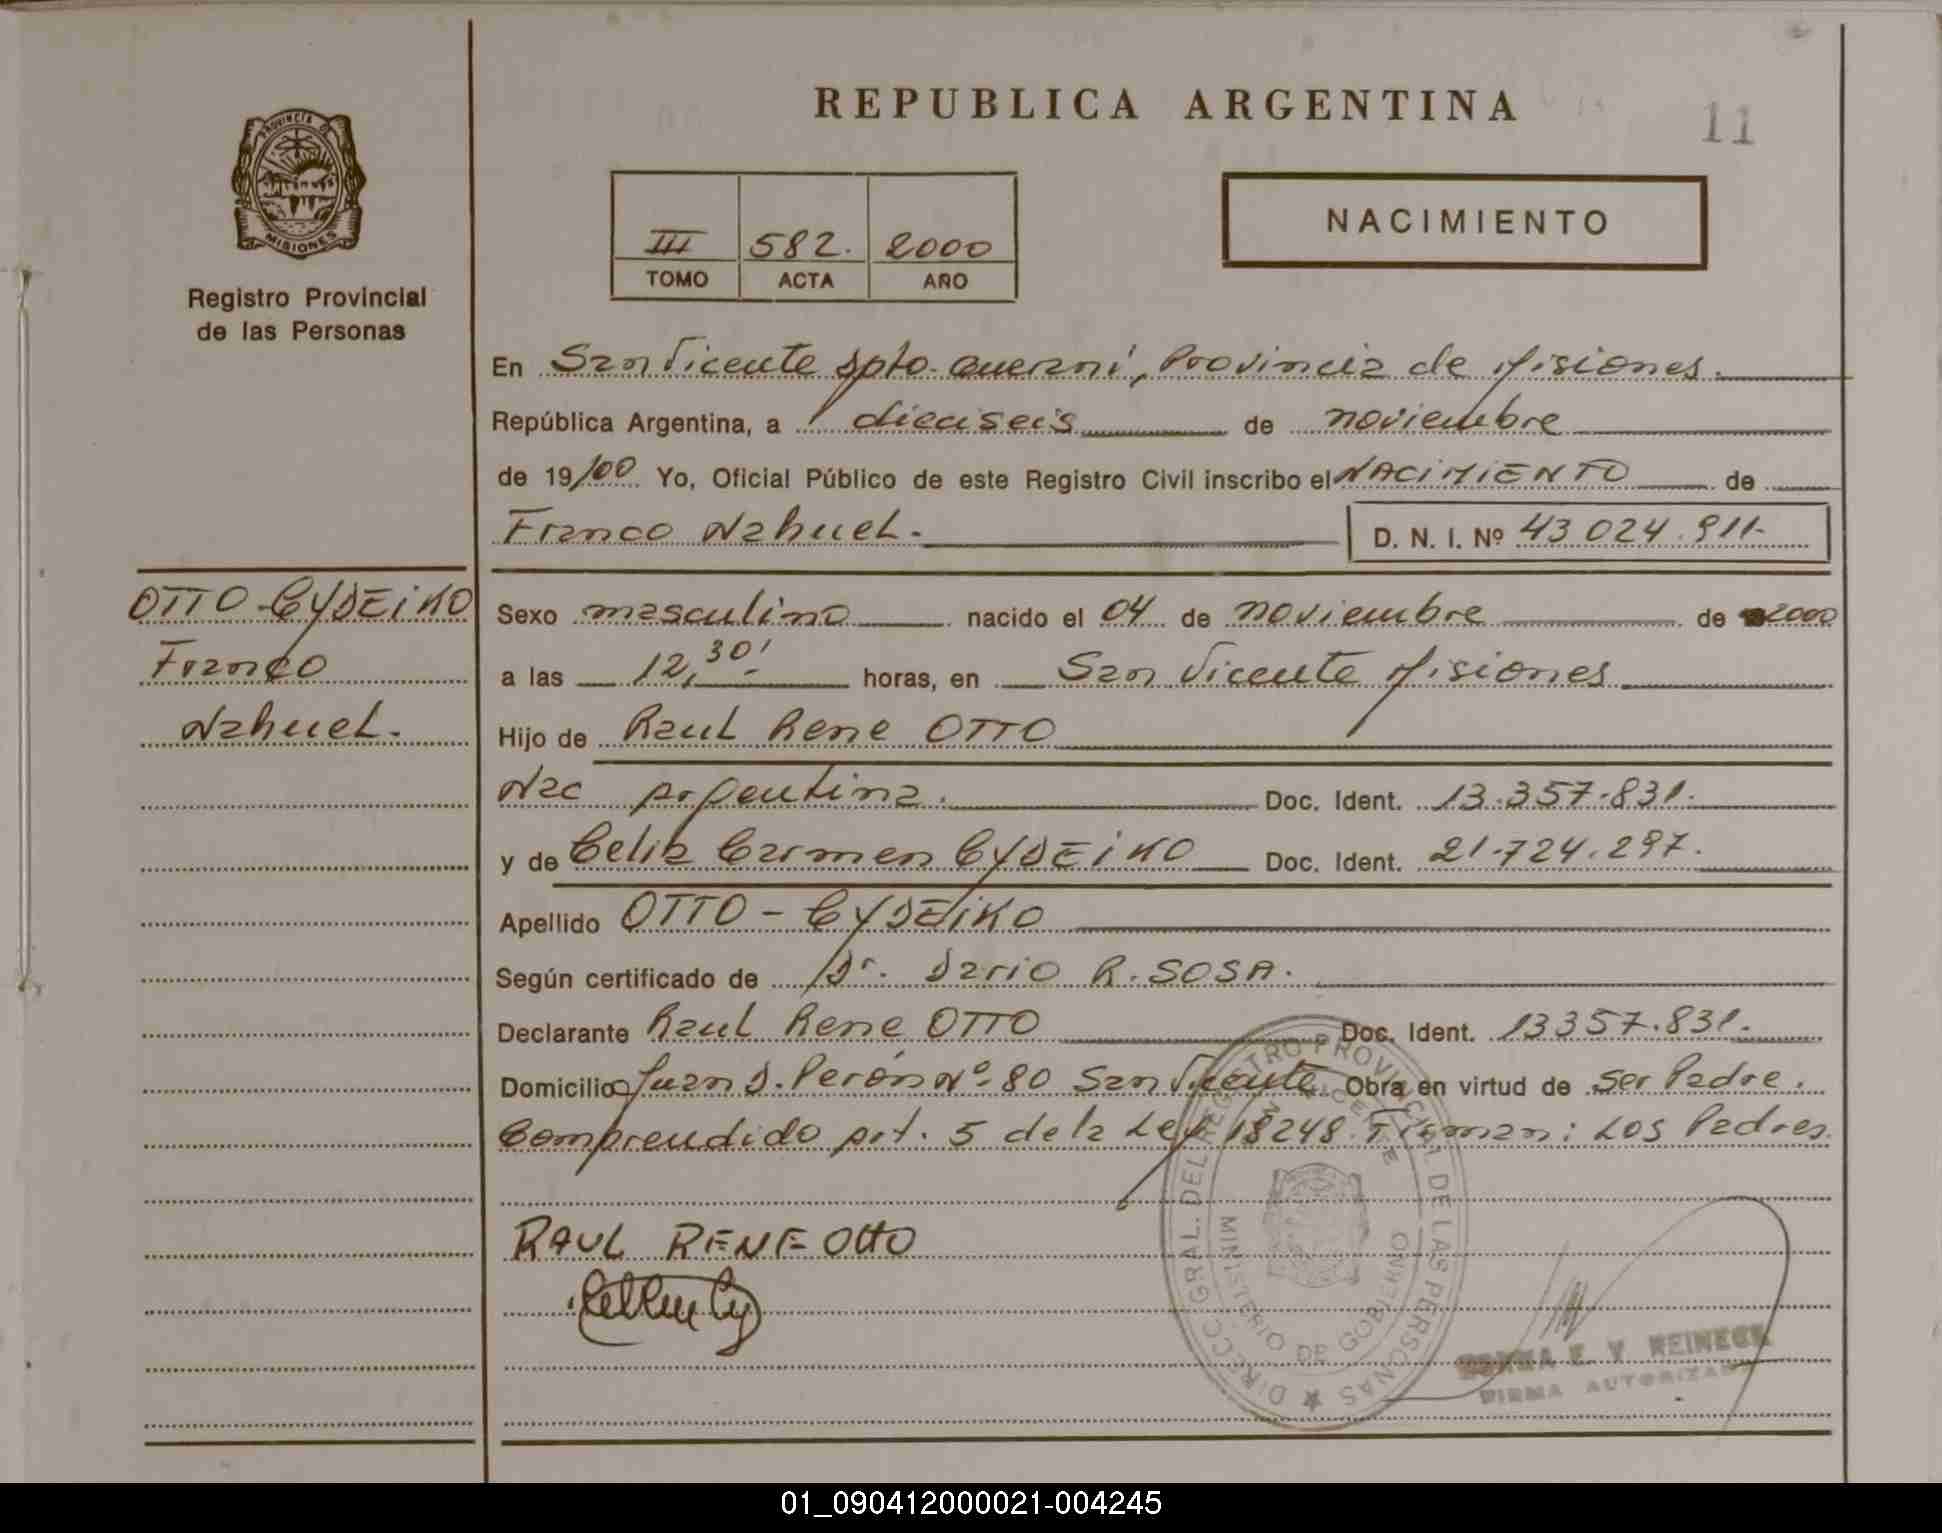 REPUBLICA ARGENTINA
11
PROVINCIA DE
MISIONES
Registro Provincial
de las Personas
III 582. 2000
TOMO ACTA AÑO
NACIMIENTO
En San Vicente Dpto. Guaraní, Provincia de Misiones.
República Argentina, a dieciseis de noviembre
de 19/00 Yo, Oficial Público de este Registro Civil inscribo el NACIMIENTO de
Franco Nahuel.
D. N. I. Nº 43.024.911-
OTTO-CYDEIKO
Franco
Nahuel.
Sexo masculino nacido el 04 de noviembre de 2000
a las 12,30' horas, en San Vicente Misiones
Hijo de Raul Rene OTTO
Nac Argentina. Doc. Ident. 13.357.831.
y de Celia Carmen CYDEIKO Doc. Ident. 21.724.297.
Apellido OTTO - CYDEIKO
Según certificado de Dr. Dario R. SOSA.
Declarante Raul Rene OTTO Doc. Ident. 13357.831.
Domicilio Juan D. Perón Nº 80 San Vicente Obra en virtud de ser Padre.
Comprendido Art. 5 de la Ley 18248. Firman: Los Padres
RAUL RENE OttO
DIRECC. GRAL. DEL REGISTRO PROVINCIAL DE LAS PERSONAS
MINISTERIO DE GOBIERNO
E. V. REINECK
FIRMA AUTORIZADA
01_090412000021-004245